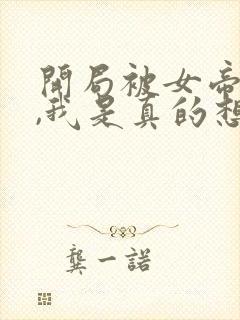 開局被女帝
,我是真的想
龔一諾